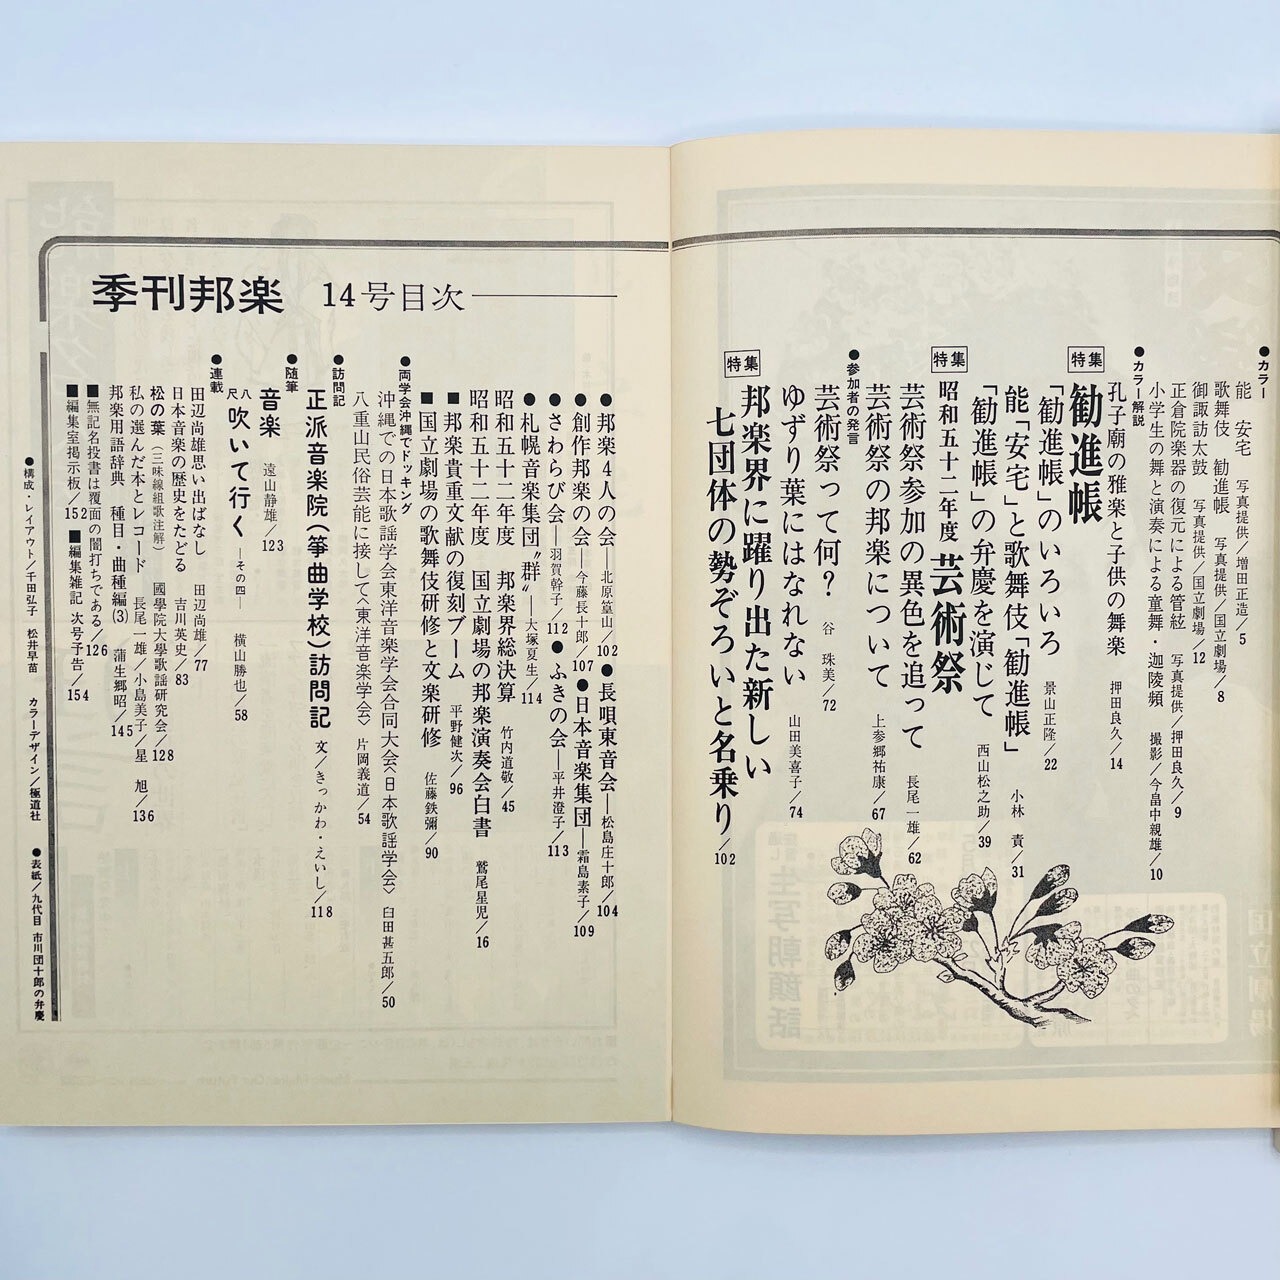 ●カラー
能　安宅　写真提供／増田正造／5
歌舞伎　勧進帳　写真提供／国立劇場／8
御諏訪太鼓　写真提供／国立劇場／12
正倉院楽器の復元による管絃　写真提供／押田良久／9
小学生の舞と演奏による童舞・迦陵頻　撮影／今畠中親雄／10
●カラー解説
孔子廟の雅楽と子供の舞楽　押田良久／14
特集
勧進帳
「勧進帳」のいろいろ　景山正隆／22
能「安宅」と歌舞伎「勧進帳」　小林　責／31
「勧進帳」の弁慶を演じて　西山松之助／39
特集
昭和五十二年度　芸術祭
芸術祭参加の異色を追って　長尾一雄／62
芸術祭の邦楽について　上参郷祐康／67
●参加者の発言
芸術祭って何？　谷　珠美／72
ゆずり葉にはなれない　山田美喜子／74
特集
邦楽界に躍り出た新しい
七団体の勢ぞろいと名乗り／102
季刊邦楽　14号目次
●邦楽4人の会―北原篁山／102　●長唄東音会―松島庄十郎／104
●創作邦楽の会―今藤長十郎／107　●日本音楽集団―霜島素子／109
●さわらび会―羽賀幹子／112　●ふきの会―平井澄子／113
●札幌音楽集団〝群〟―大塚夏生／114
昭和五十二年度　邦楽界総決算　竹内道敬／45
昭和五十二年度　国立劇場の邦楽演奏会白書　鷲尾星児／16
■邦楽貴重文献の復刻ブーム　平野健次／96
■国立劇場の歌舞伎研修と文楽研修　佐藤鉄彌／90
●両学会沖縄でドッキング
沖縄での日本歌謡学会東洋音楽学会合同大会〈日本歌謡学会〉　臼田甚五郎／50
八重山民俗芸能に接して〈東洋音楽学会〉　片岡義道／54
●訪問記
正派音楽院（箏曲学校）訪問記　文／きっかわ・えいし／118
●随筆
音楽　遠山静雄／123
尺八吹いて行く　―その四―　横山勝也／58
●連載
田辺尚雄思い出ばなし　田辺尚雄／77
日本音楽の歴史をたどる　吉川英史／83
松の葉（三味線組歌注解）　國學院大學歌謡研究会／128
私の選んだ本とレコード　長尾一雄／小島美子／星　旭／136
邦楽用語辞典　種目・曲種編(3)　蒲生郷昭／145
■無記名投書は覆面の闇打ちである／126
■編集室掲示板／152　■編集雑記　次号予告／154
●構成・レイアウト／千田弘子　松井早苗　カラーデザイン／極道社　●表紙／九代目　市川団十郎の弁慶